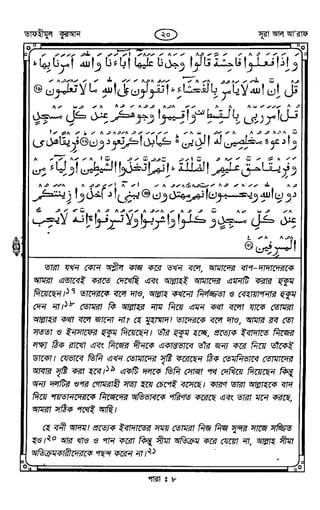 তাফহীমুল কুরআন
২০
সূরা আল আ'রাফ
وَإِذَا فَعَلُوا فَاحِشَةً قَالُوا وَجَدْنَا عَلَيْهَا آبَاءَنَا وَاللَّهُ أَمَرَنَا بِهَا
قُلْ إِنَّ اللَّهَ لَا يَأْمُرُ بِالْفَحْشَاءِ أَتَقُولُونَ عَلَى اللَّهِ مَا لَا تَعْلَمُونَ
قُلْ أَمَرَ رَبِّي بِالْقِسْطِ وَأَقِيمُوا وُجُوهَكُمْ عِنْدَ كُلِّ مَسْجِدٍ
وَادْعُوهُ مُخْلِصِينَ لَهُ الدِّينَ كَمَا بَدَأَكُمْ تَعُودُونَ فَرِيقًا هَدَى
وَفَرِيقًا حَقَّ عَلَيْهِمُ الضَّلَالَةُ إِنَّهُمُ اتَّخَذُوا الشَّيَاطِينَ أَوْلِيَاءَ مِنْ
دُونِ اللَّهِ وَيَحْسَبُونَ أَنَّهُمْ مُهْتَدُونَ يَا بَنِي آدَمَ خُذُوا زِينَتَكُمْ
عِنْدَ كُلِّ مَسْجِدٍ وَكُلُوا وَاشْرَبُوا وَلَا تُسْرِفُوا إِنَّهُ لَا يُحِبُّ
الْمُسْرِفِينَ
তারা যখন কোন অশ্লীল কাজ করে তখন বলে, আমাদের বাপ-দাদাদেরকে
আমরা এভাবেই করতে দেখেছি এবং আল্লাহই আমাদের এমনটি করার হুকুম
দিয়েছেন।১৭ তাদেরকে বলে দাও, আল্লাহ কখনো নির্লজ্জতা ও বেহায়াপনার হুকুম
দেন না।১৮ তোমরা কি আল্লাহর নাম নিয়ে এমন কথা বলো যাকে তোমরা
আল্লাহর কথা বলে জানো না? হে মুহাম্মাদ! তাদেরকে বলে দাও, আমার রব তো
সততা ও ইনসাফের হুকুম দিয়েছেন। তাঁর হুকুম হচ্ছে, প্রত্যেক ইবাদাতে নিজের
লক্ষ্য ঠিক রাখো এবং নিজের দীনকে একান্তভাবে তাঁর জন্য করে নিয়ে তাঁকেই
ডাকো। যেভাবে তিনি এখন তোমাদের সৃষ্টি করেছেন ঠিক তেমনিভাবে তোমাদের
আবার সৃষ্টি করা হবে।১৯ একটি দলকে তিনি সোজা পথ দেখিয়ে দিয়েছেন কিন্তু
অন্য দলটির ওপর গোমরাহী সত্য হয়ে চেপেই বসেছে। কারণ তারা আল্লাহকে বাদ
দিয়ে শয়তানদেরকে নিজেদের অভিভাবকে পরিণত করেছে এবং তারা মনে করছে,
আমরা সঠিক পথেই আছি।
হে বনী আদম! প্রত্যেক ইবাদাতের সময় তোমরা নিজ নিজ সুন্দর সাজে সজ্জিত
হও।২০ আর খাও ও পান করো কিন্তু সীমা অতিক্রম করে যেয়ো না, আল্লাহ সীমা
অতিক্রমকারীদেরকে পছন্দ করেন না।২১
পারা ঃ ৮